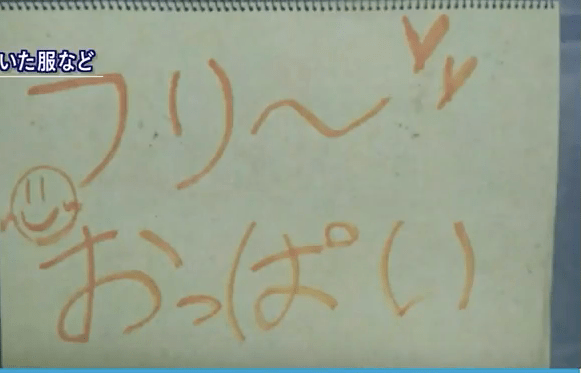 いた服など
フリ～
おっぱい